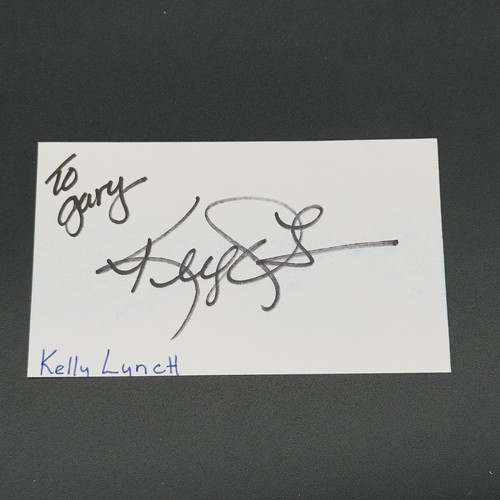 To
Gary
Kelly Lynch